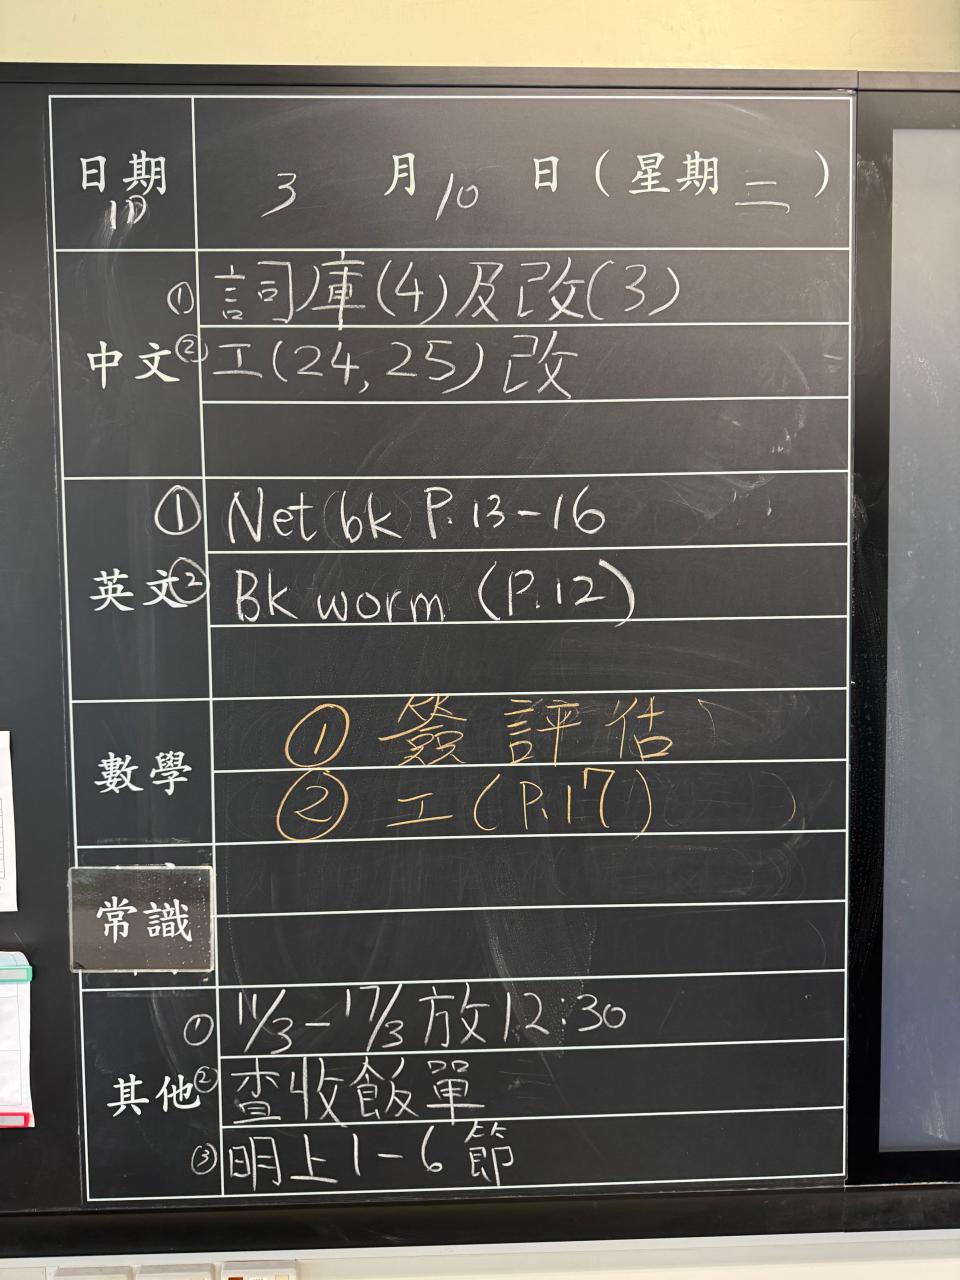 日期 3 月 10 日 ( 星期 二 )
1D
中文
① 詞庫(4)及改(3)
② 工(24,25)改
英文
① Net bk P.13-16
② Bk worm (P.12)
數學
① 簽評估
② 工(P.17)
常識
其他
① 11/3-17/3 放12:30
② 查收飯單
③ 明上1-6節